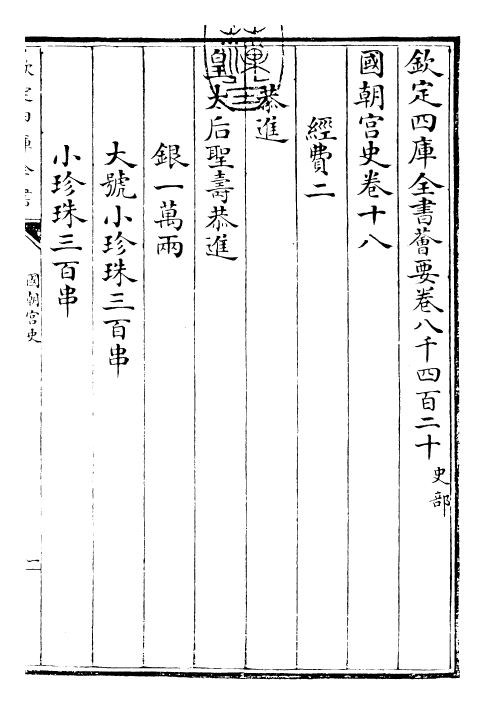 欽定四庫全書薈要卷八千四百二十 史部
國朝宫史卷十八
經費二
恭進
皇太后聖壽恭進
銀一萬兩
大號小珍珠三百串
小珍珠三百串
欽定四庫全書
國朝宫史
一